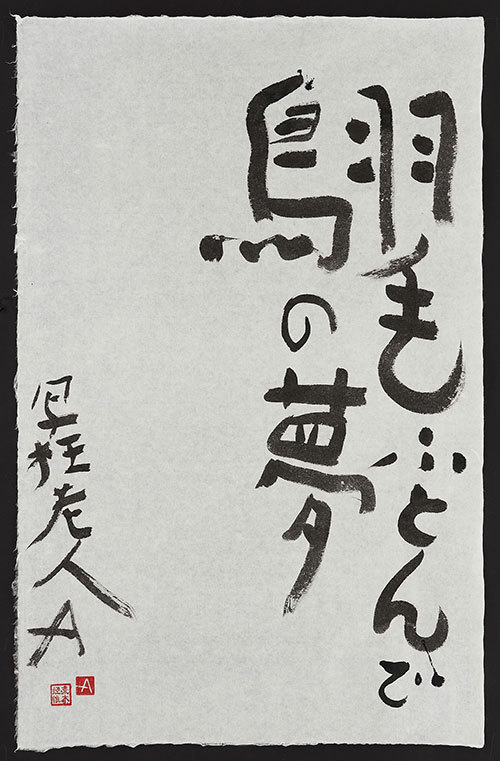 羽毛ぶとんで
鳥の夢
写狂老人A
A